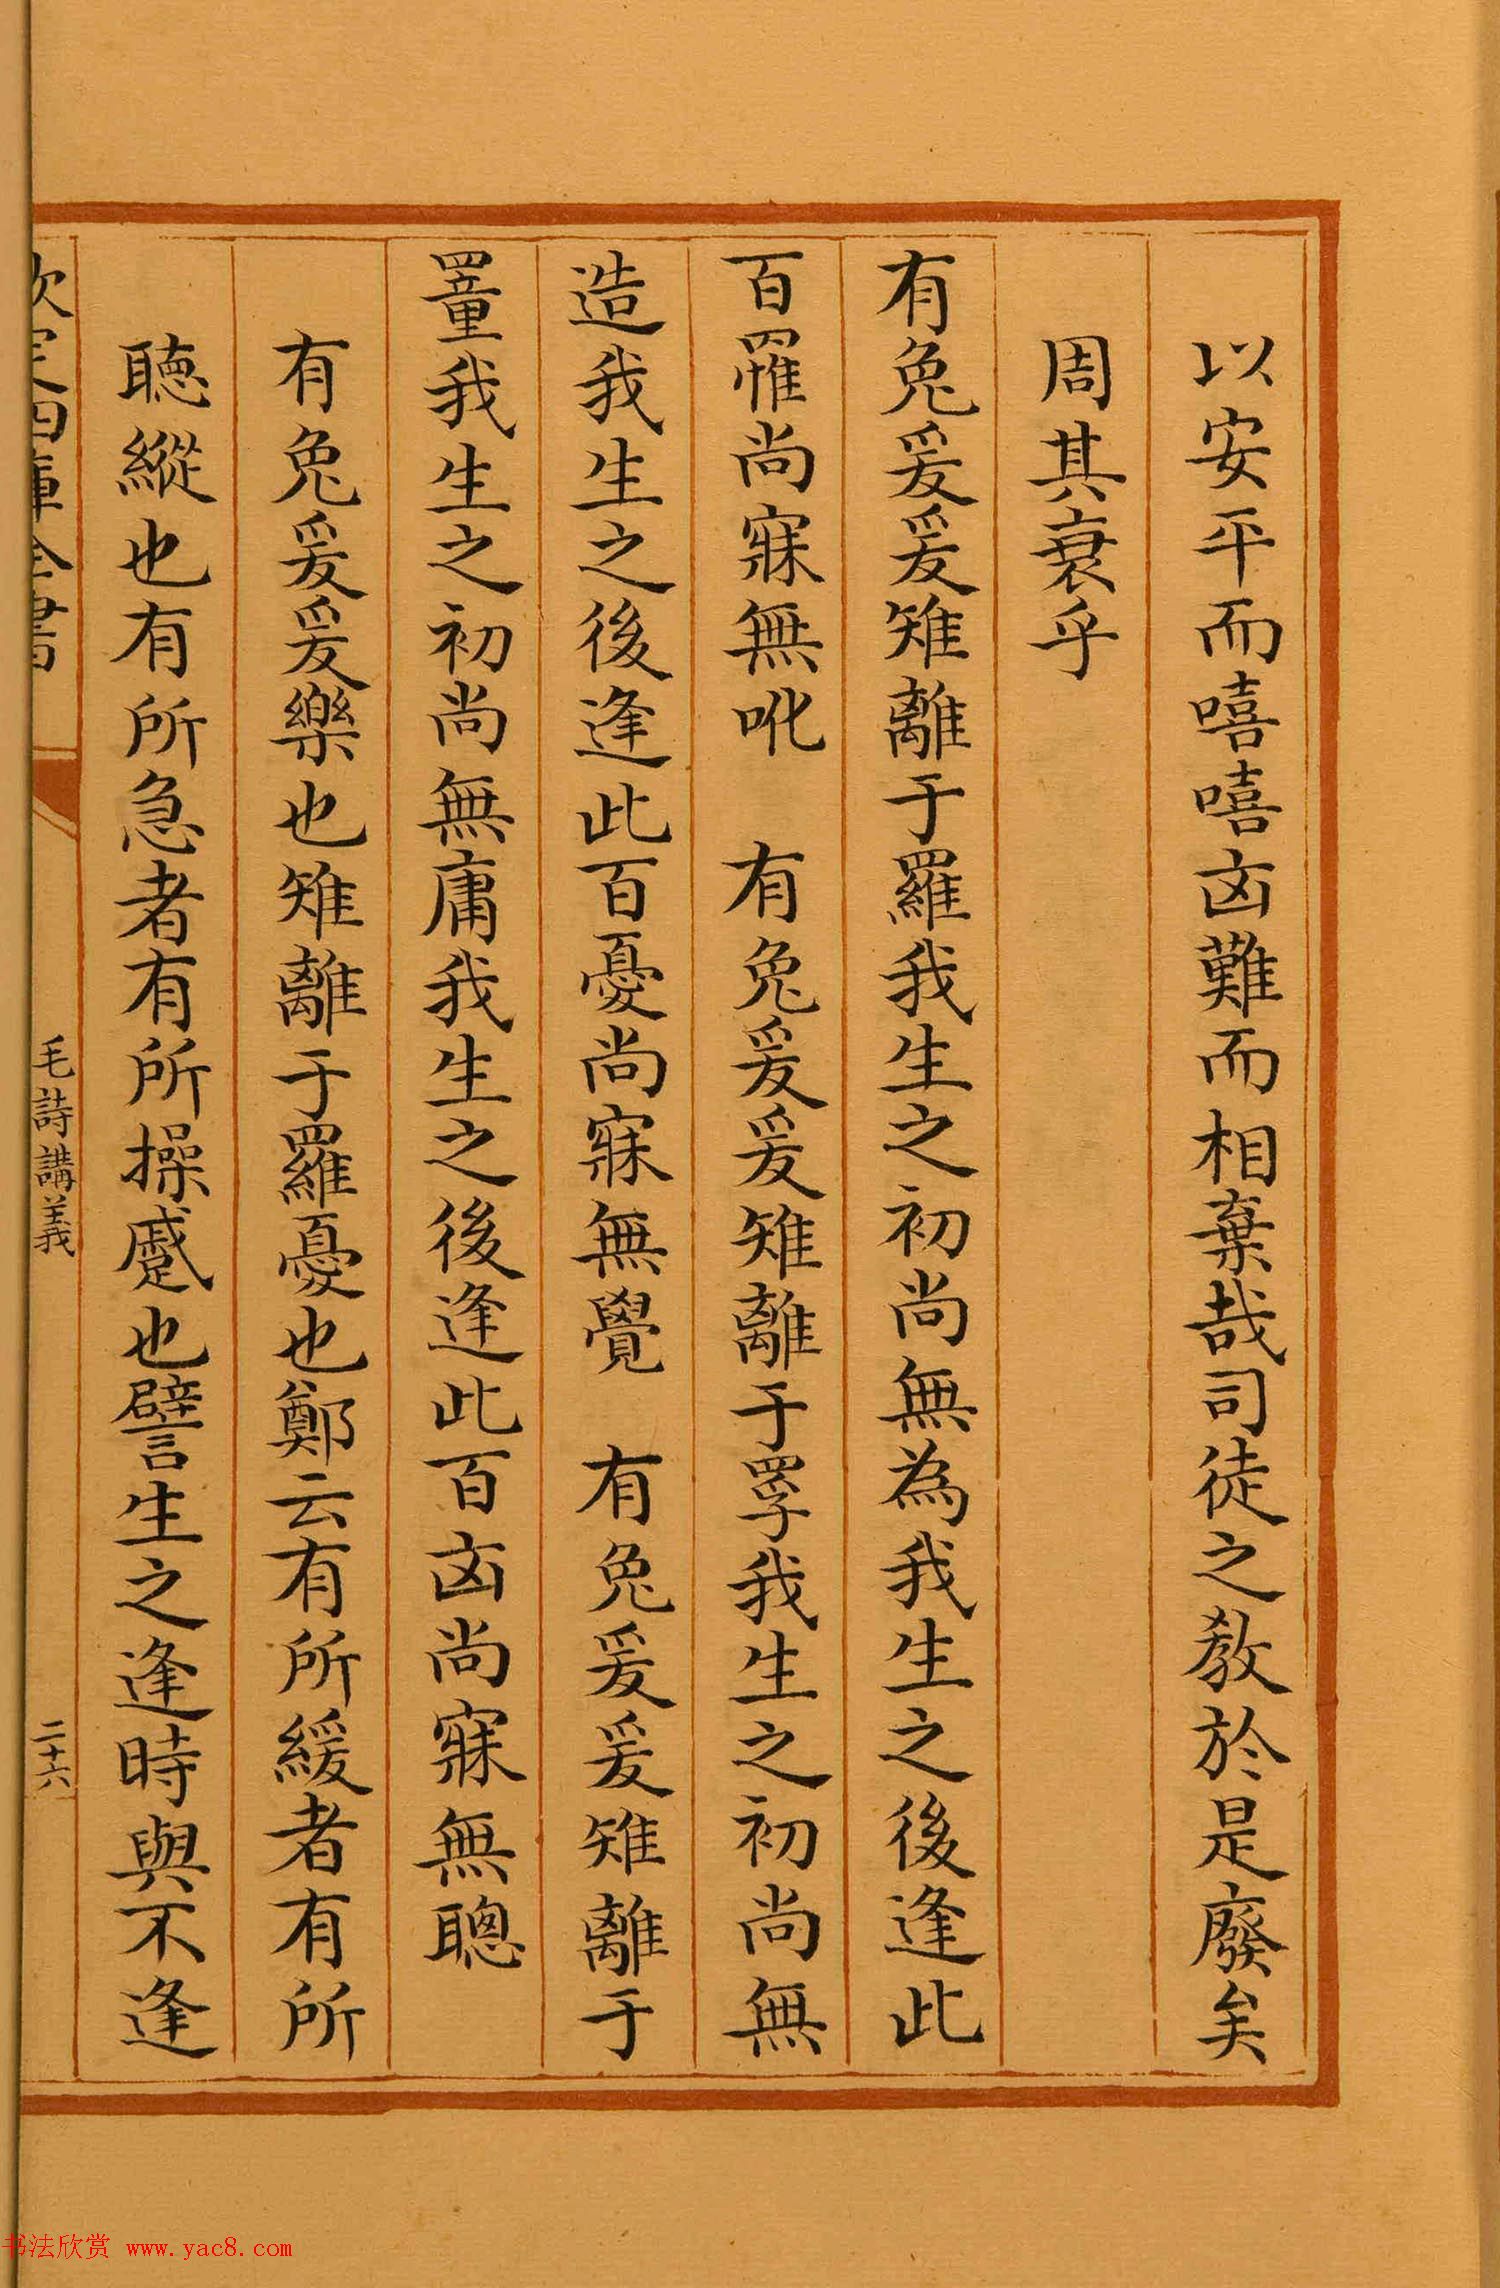 以安平而嘻嘻凶難而相棄哉司徒之教於是廢矣
周其衰乎
有兔爰爰雉離于羅我生之初尚無為我生之後逢此
百罹尚寐無吪　有兔爰爰雉離于罦我生之初尚無
造我生之後逢此百憂尚寐無覺　有兔爰爰雉離于
罿我生之初尚無庸我生之後逢此百凶尚寐無聰
有兔爰爰樂也雉離于羅憂也鄭云有所緩者有所
聴縱也有所急者有所操蹙也譬生之逢時與不逢
欽定四庫全書
毛詩講義
二十六
书法欣赏 www.yac8.com